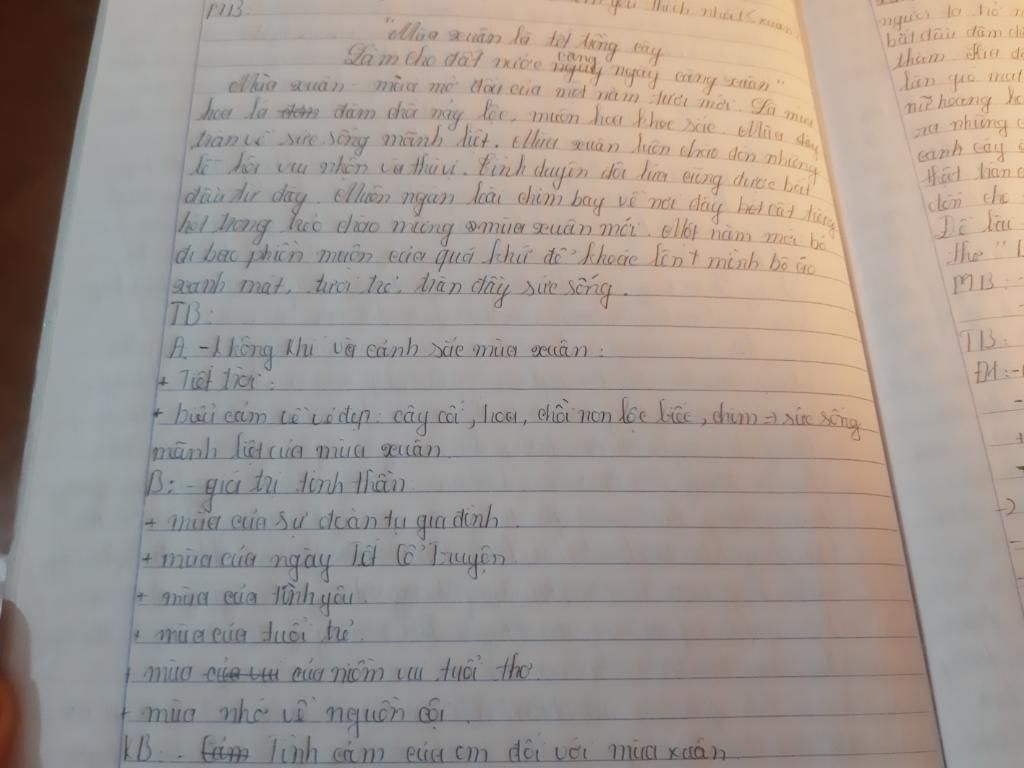 MB: yêu thích nhất < xuân
"Mùa xuân là tết trồng cây
Làm cho đất nước càng ngày càng xuân"
Mùa xuân - mùa mở đầu của một năm tươi mới. Là mùa
hoa lá đâm chồi nảy lộc, muôn hoa khoe sắc. Mùa đầy
tràn về sức sống mãnh liệt. Mùa xuân luôn chào đón những
lễ hội vui nhộn và thú vị. Tình duyên đôi lứa cũng được bắt
đầu từ đây. Muôn ngàn loài chim bay về nơi đây cất tiếng
hót trong trẻo chào mừng mùa xuân mới. Một năm mới bỏ
đi bao phiền muộn của quá khứ để khoác lên mình bộ áo
xanh mát, tươi trẻ, tràn đầy sức sống.
TB:
A. - không khí và cảnh sắc mùa xuân:
+ Tiết trời:
+ buổi cảm về vẻ đẹp: cây cối, hoa, chồi non lộc biếc, chim => sức sống
mãnh liệt của mùa xuân.
B: - giá trị tinh thần
+ mùa của sự đoàn tụ gia đình.
+ mùa của ngày Tết Cổ Truyện
+ mùa của tình yêu.
+ mùa của tuổi trẻ.
+ mùa của niềm vui tuổi thơ
+ mùa nhớ về nguồn cội.
KB: - Tình cảm của em đối với mùa xuân
người ta
bắt đầu đâm ch
thắm
làn gió mát
nữ hoàng
ra những
cành cây
đón cho
Để
thơ "
MB: -
TB: